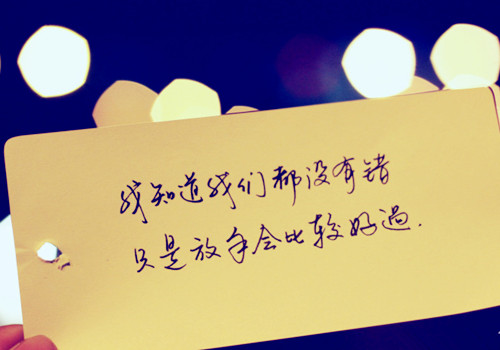 我知道我们都没有错
只是放手会比较好过.